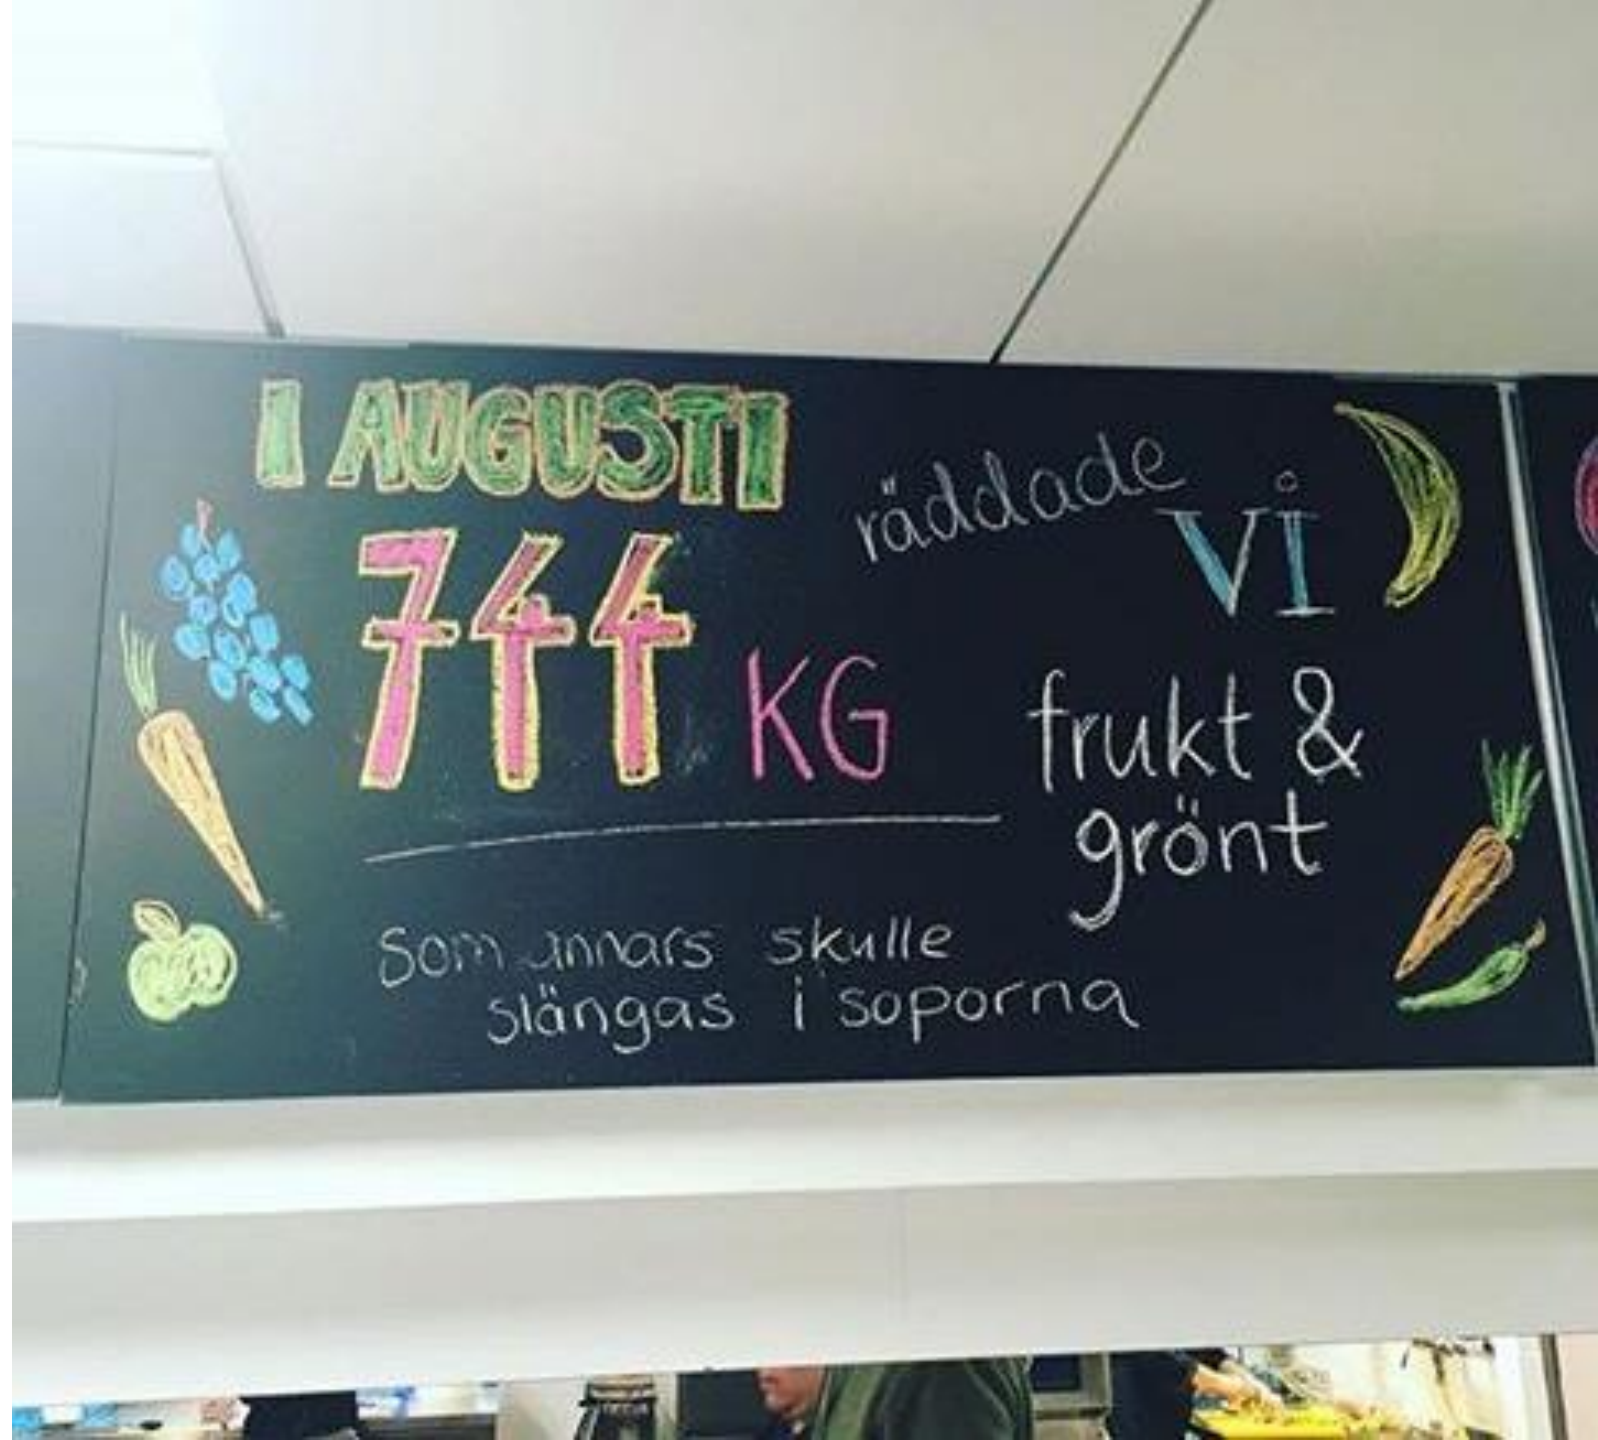 I AUGUSTI
räddade
vi
744 KG
frukt &
grönt
som annars skulle
slängas i soporna